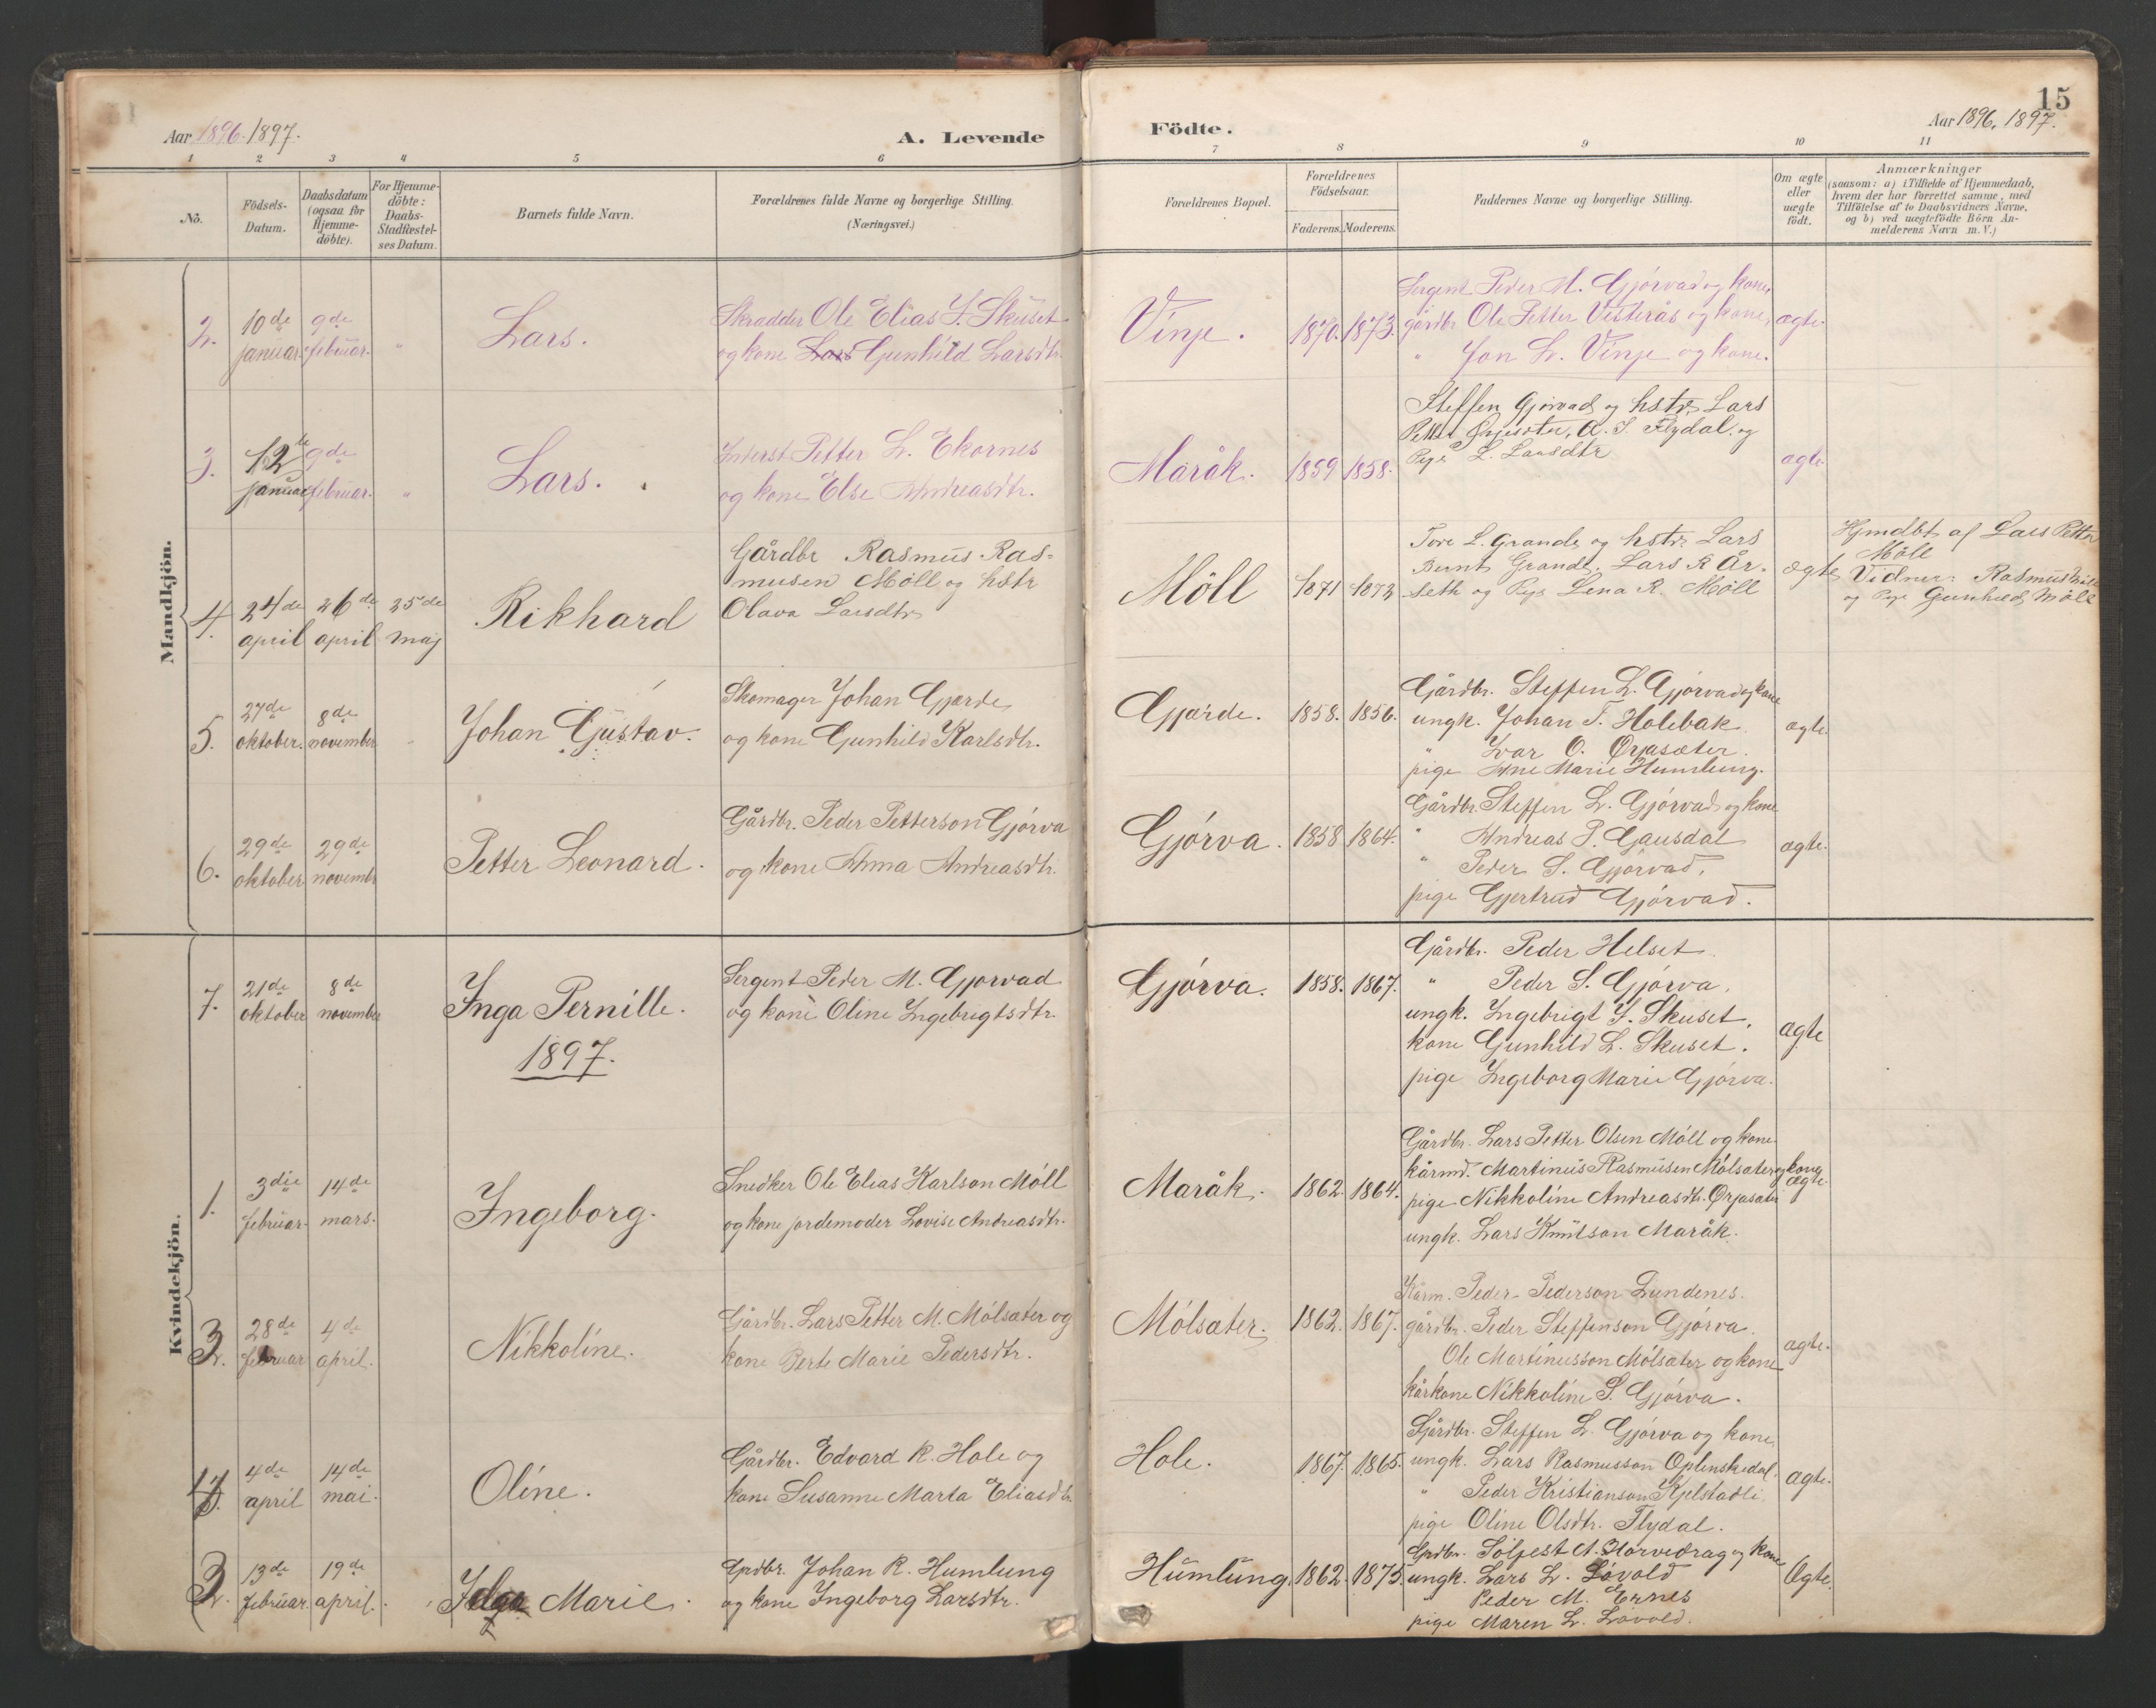 15
Aar 1896. 1897.
A. Levende
Födte.
Aar 1896. 1897.
1 2 3 4 5 6 7 8 9 10 11
No.
Födsels-
Datum.
Daabsdatum
(ogsaa for
Hjemme-
döbte).
For Hjemme-
döbte:
Daabs-
Stadfæstel-
ses Datum.
Barnets fulde Navn.
Forældrenes fulde Navne og borgerlige Stilling.
(Næringsvei.)
Forældrenes Bopæl.
Forældrenes
Födselsaar.
Faderens. Moderens.
Faddernes Navne og borgerlige Stilling.
Om ægte
eller
uægte
födt.
Anmærkninger
(saasom: a) i Tilfælde af Hjemmedaab,
hvem der har forrettet samme, med
Tilföielse af to Daabsvidners Navne,
og b) ved uægtefödte Börn An-
melderens Navn m. V.)
Mandkjön.
2. 10de januar. 9de februar. " Lars.
Skrædder Ole Elias I. Skuset
og kone Lars Gunhild Larsdtr.
Vinje. 1870. 1873.
Sergent Peder M. Gjørvad og kone,
gårdbr Ole Petter Vesterås og kone,
" Jon L. Vinje og kone.
ægte.
3. 12te januar 9de februar. " Lars.
Inderst Petter L. Ekornes
og kone Else Andreasdtr.
Maråk. 1859 1858.
Steffen Gjørvad og hstr, Lars
Petter Ørjesæter, A. I. Flydal og
Pige L. Larsdtr
ægte.
4. 24de april 26de april 25de maj Rikhard
Gårdbr Rasmus Ras-
musen Möll og hstr
Olava Larsdtr
Möll 1871 1872
Tore L. Grande og hstr. Lars
Bernt Grande. Lars R År-
seth og Pige Lena R. Möll
ægte
Hjmdbt af Lars Petter
Möll
Vidner: Rasmus
og Pige Gunhild Möll
5. 27de oktober. 8de november " Johan Gustav.
Skomager Johan Gjærde
og kone Gunhild Karlsdtr.
Gjærde. 1858. 1856.
Gårdbr. Steffen L. Gjørvad og kone
ungk. Johan T. Holebak.
" Ivar O. Ørjasæter.
pige Ane Marie Humlung.
ægte.
6. 29de oktober. 29de novembr Petter Leonard.
Gårdbr. Peder Petterson Gjørva
og kone Anna Andreasdtr.
Gjørva. 1858 1864.
Gårdbr. Steffen L. Gjørvad og kone
" Andreas P. Gausdal
" Peder S. Gjørvad.
pige Gjertrud Gjørvad.
ægte.
Kvindekjön.
7. 21de oktober 8de november Inga Pernille.
Sergent Peder M. Gjørvad
og kone Oline Ingebrigtsdtr.
Gjørva. 1858. 1867.
Gårdbr. Peder Helset.
" Peder S. Gjørva.
ungk. Ingebrigt I. Skuset.
kone Gunhild L. Skuset.
pige Ingeborg Marie Gjørva.
ægte
1897.
1. 3die februar. 14de mars. Ingeborg.
Snedker Ole Elias Karlson Möll
og kone jordemoder Lovise Andreasdtr.
Maråk. 1862. 1864.
Gårdbr. Lars Petter Olsen Möll og kone
kårmd. Martinus Rasmusen Mölsæter og kone
pige Nikkoline Andreasdtr. Ørjasæter
ungk. Lars Knutson Maråk.
ægte.
2. 28de februar 4de april. Nikkoline.
Gårdbr. Lars Petter M. Mölsæter og
kone Berte Marie Pedersdtr.
Mölsæter. 1862. 1867.
Kårm. Peder Pederson Lundenes.
gårdbr. Peder Steffenson Gjørva.
Ole Martinusson Mölsæter og kone
kårkone Nikkoline S. Gjørva.
ægte.
4. 4de april 14de mai. Oline.
Gårdbr. Edvard R. Hole og
kone Susanne Marta Eliasdtr.
Hole. 1867. 1865.
Gårdbr. Steffen L. Gjørva og kone.
ungk. Lars Rasmusson Oplenskedal.
" Peder Kristianson Kjelstadli
pige Oline Olsdtr. Flydal.
ægte.
3. 13de februar. 19de april. Marie.
Grdbr. Johan R. Humlung
og kone Ingeborg Larsdtr.
Humlung. 1862. 1875.
Grdbr. Solfest A. Korvedrag og kone
ungk. Lars L. Løvold
Peder M. Ernes
pige Maren L. Løvold.
Ægte.